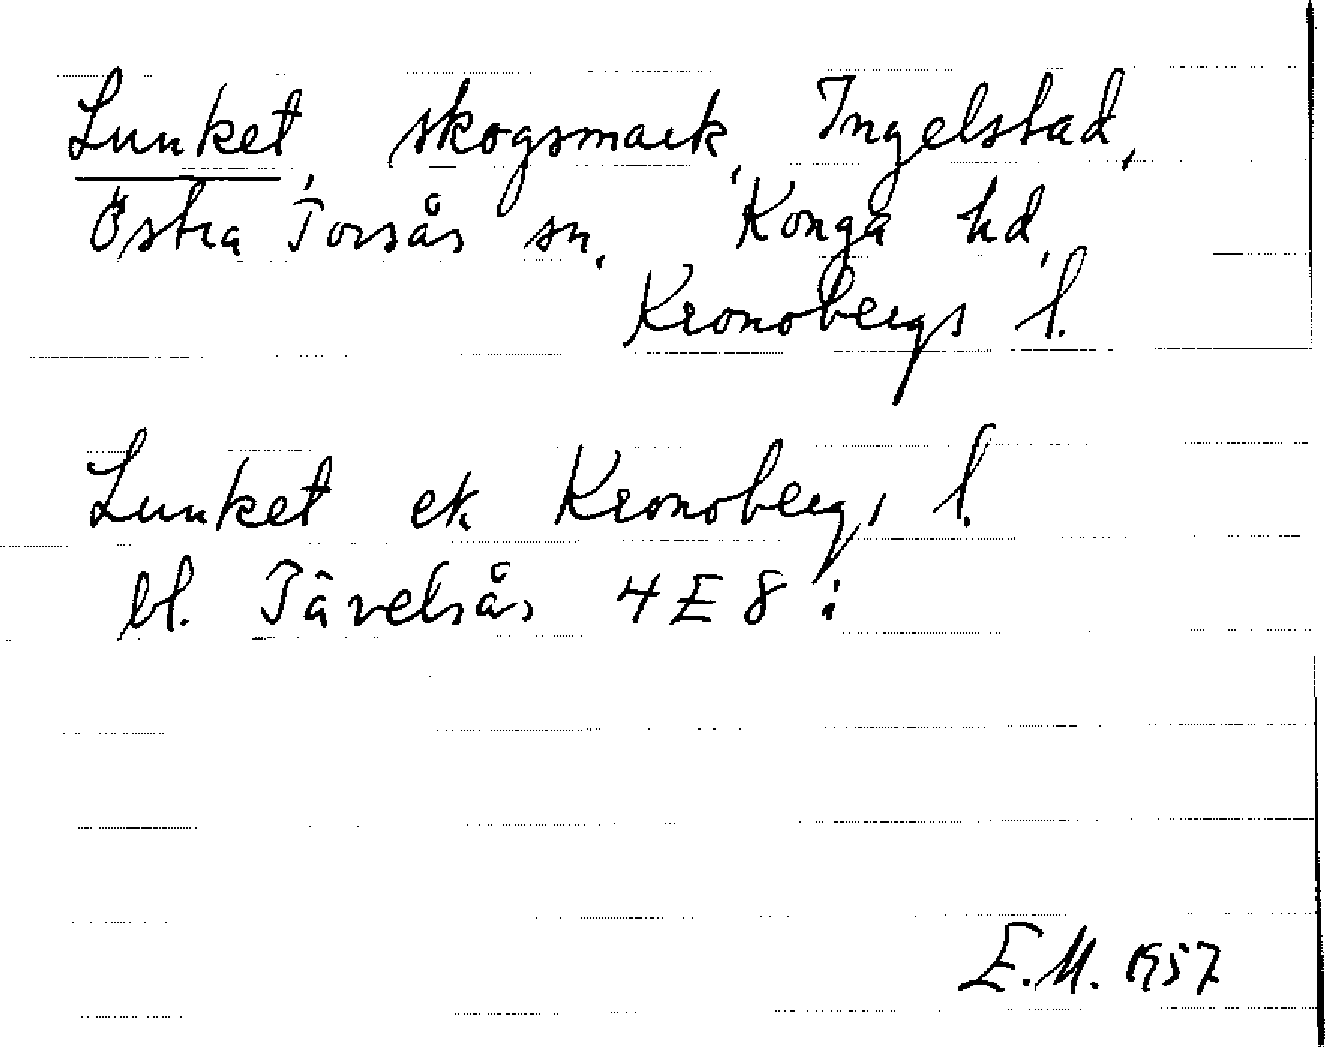 Lunket, skogsmark, Ingelstad,
Östra Torsås sn, Konga hd,
Kronobergs l.
Lunket ek Kronobergs l.
bl. Tävelsås 4E8i
E.M. 1957